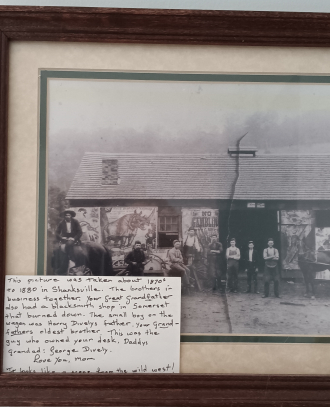 This picture was taken about 1870s
to 1880 in Shanksville. The brothers in
business together, Your Great Grandfather
also had a blacksmith shop in Somerset
that burned down. The small boy on the
wagon was Harry Divelys father. Your Grand-
fathers oldest brother. This was the
guy who owned your desk. Daddys
grandad: George Dively.
Love You, Mom
It looks like a scene from the wild west!